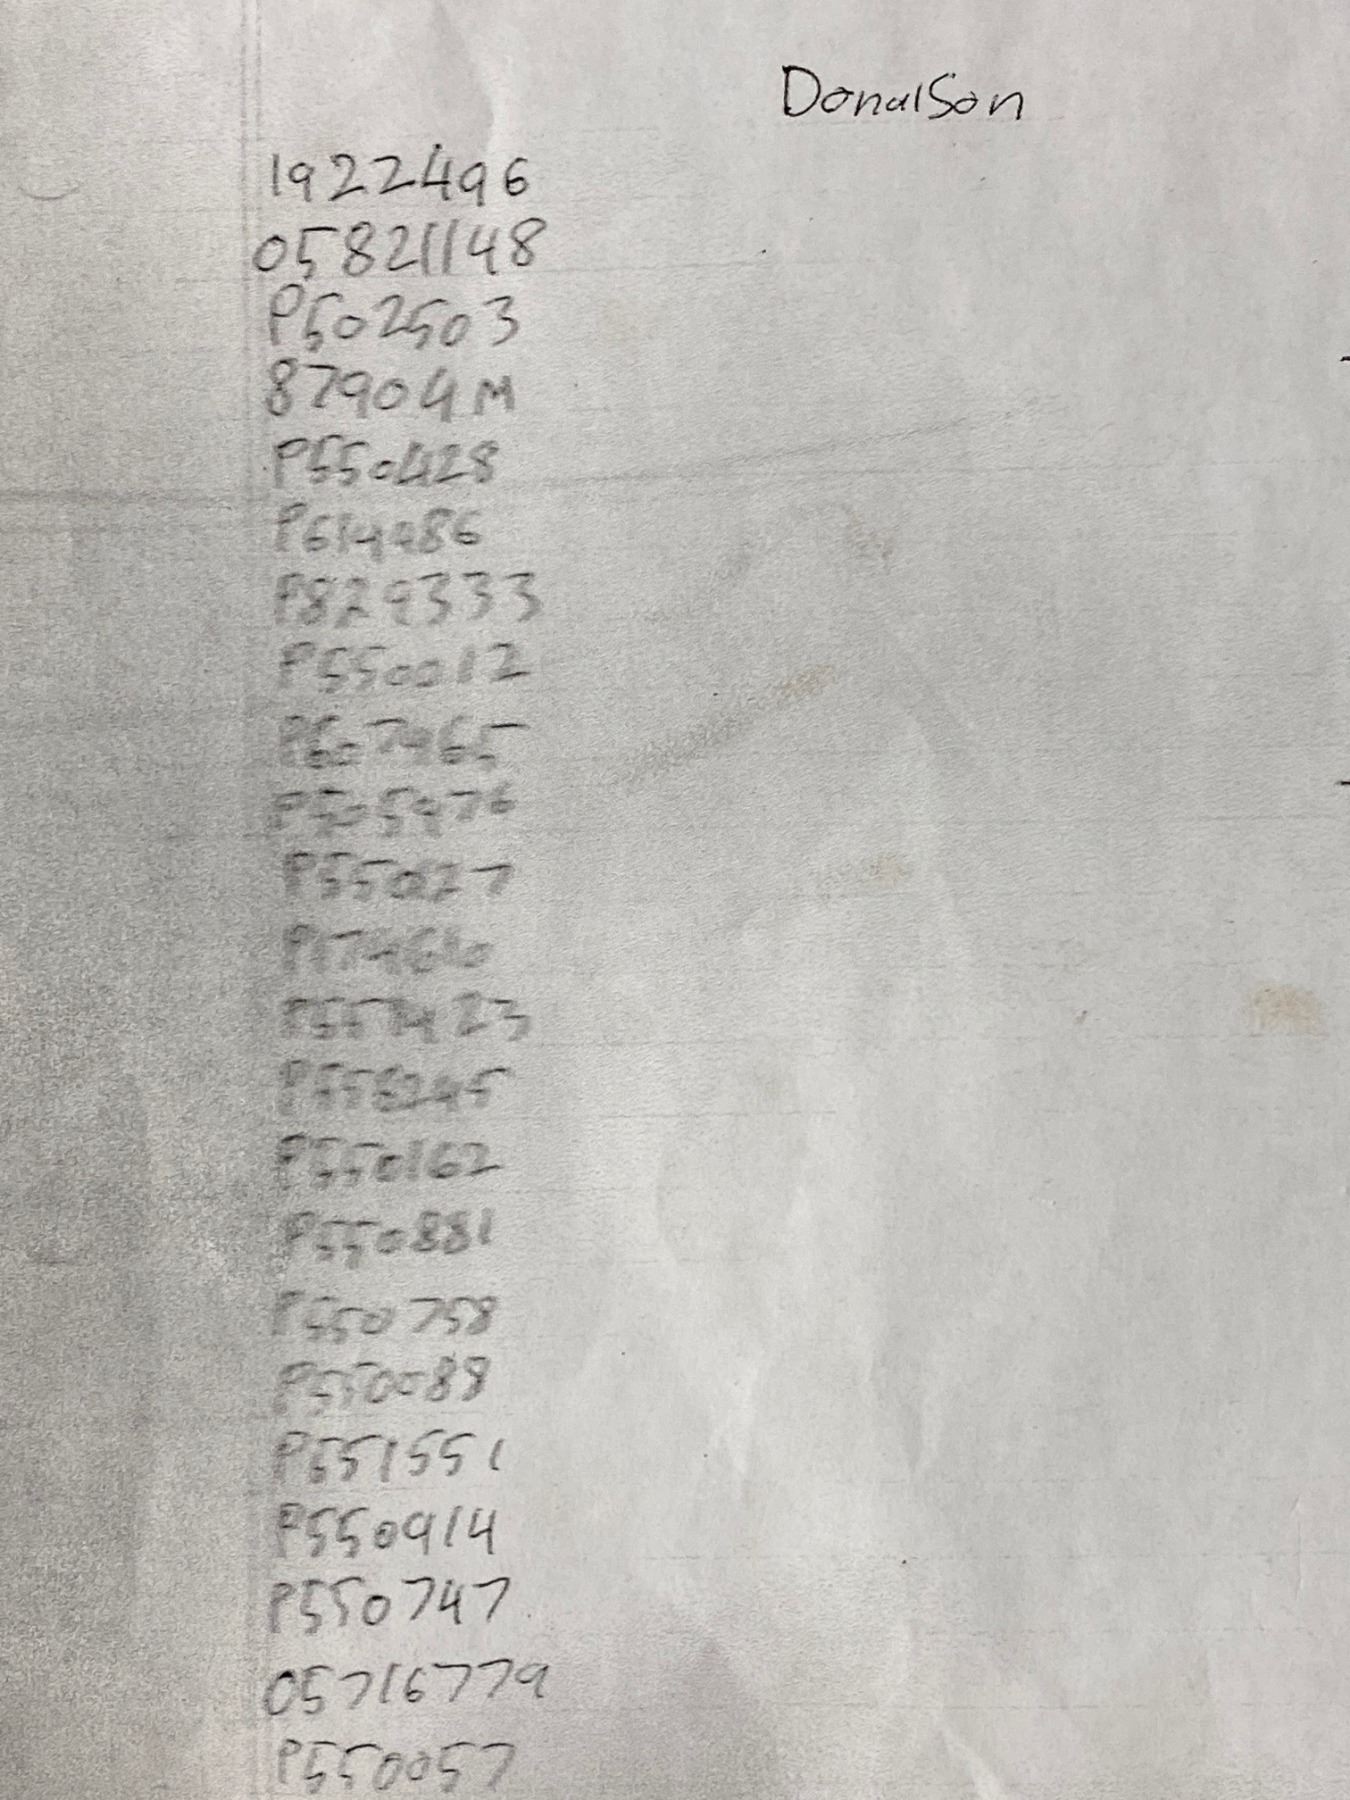 DonalSon
1922496
05821148
P502503
87904M
P550428
P614986
P829333
P550012
P607965
P505976
P550127
P174610
P551423
P558245
P550162
P550881
P550758
P550088
P551551
P550914
P550747
05716779
P550057